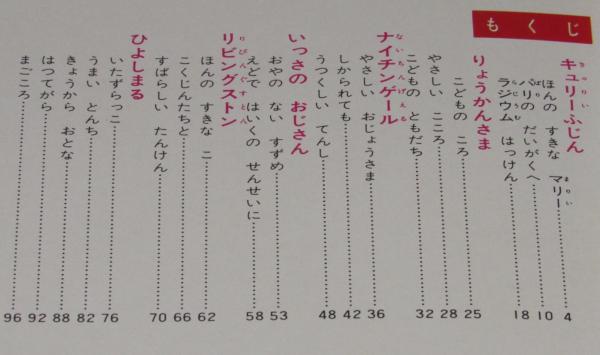 もくじ
キュリーふじん
きゅりい
ほんの すきな マリー……4
まりい
パリの だいがくへ……10
ぱり
ラジウム はっけん……18
らじうむ
りょうかんさま
こどもの ころ……25
やさしい こころ……28
こどもの ともだち……32
ナイチンゲール
ないちんげえる
やさしい おじょうさま……36
しかられても……42
うつくしい てんし……48
いっさの おじさん
おやの ない すずめ……53
えどで はいくの せんせいに……58
リビングストン
りびんぐすとん
ほんの すきな こ……62
こくじんたちと……66
すばらしい たんけん……70
ひよしまる
いたずらっこ……76
うまい とんち……82
きょうから おとな……88
はつてがら……92
まごころ……96